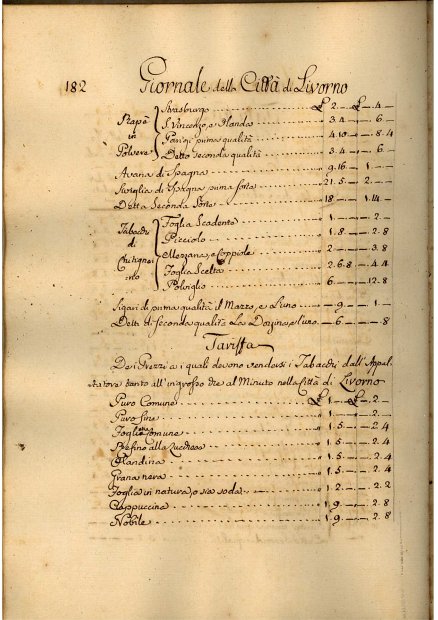 182 Giornale della Città di Livorno
Strasburgo £ 2.—.£.4.—
Rapè S. Vincenzo, e Olanda 3.4.—.6.—
in Parigi prima qualità 4.10.—.8.4
Polvere Detto seconda qualità 3.4.—.6.—
Avana di Spagna 9.16.—.1.—
Siviglia di Spagna prima sorte 21.5.—.2.—
Detta Seconda Sorte 18.—.1.14.—
Foglia Scadente 1.—.—.2.—
Tabacchi Picciolo 1.8.—.2.8
di Mezzana, e Coppiole 2.—.—.3.8
Foglia Scelta 2.6.8.—.4.4
Polviglio 6.—.—.12.8
Sigari di prima qualità il Mazzo, e l'uno —.9.—.1.—
Detti di seconda qualità La Dozzina, e l'uno —.6.—.—.8
Tariffa
Dei Prezzi a i quali devono vendersi i Tabacchi dall' Appal-
tatore tanto all' ingrosso che al Minuto nella Città di Livorno
Puro Comune £ 1.—.—.£.—.2.—
Puro fine 1.—.—.2.—
Foglietta Comune 1.5.—.2.4
Refino alla Zucchera 1.5.—.2.4
Olandina 1.5.—.2.4
Grana nera 1.5.—.2.4
Foglia in natura, o sia soda 1.2.—.2.2
Cappuccina 1.9.—.2.8
Nobile 1.9.—.2.8